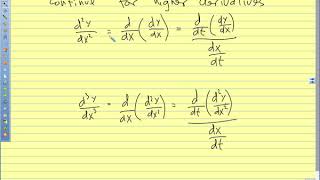 continue for higher derivatives
d²y/dx² = d/dx (dy/dx) = d/dt (dy/dx) / dx/dt
d³y/dx³ = d/dx (d²y/dx²) = d/dt (d²y/dx²) / dx/dt